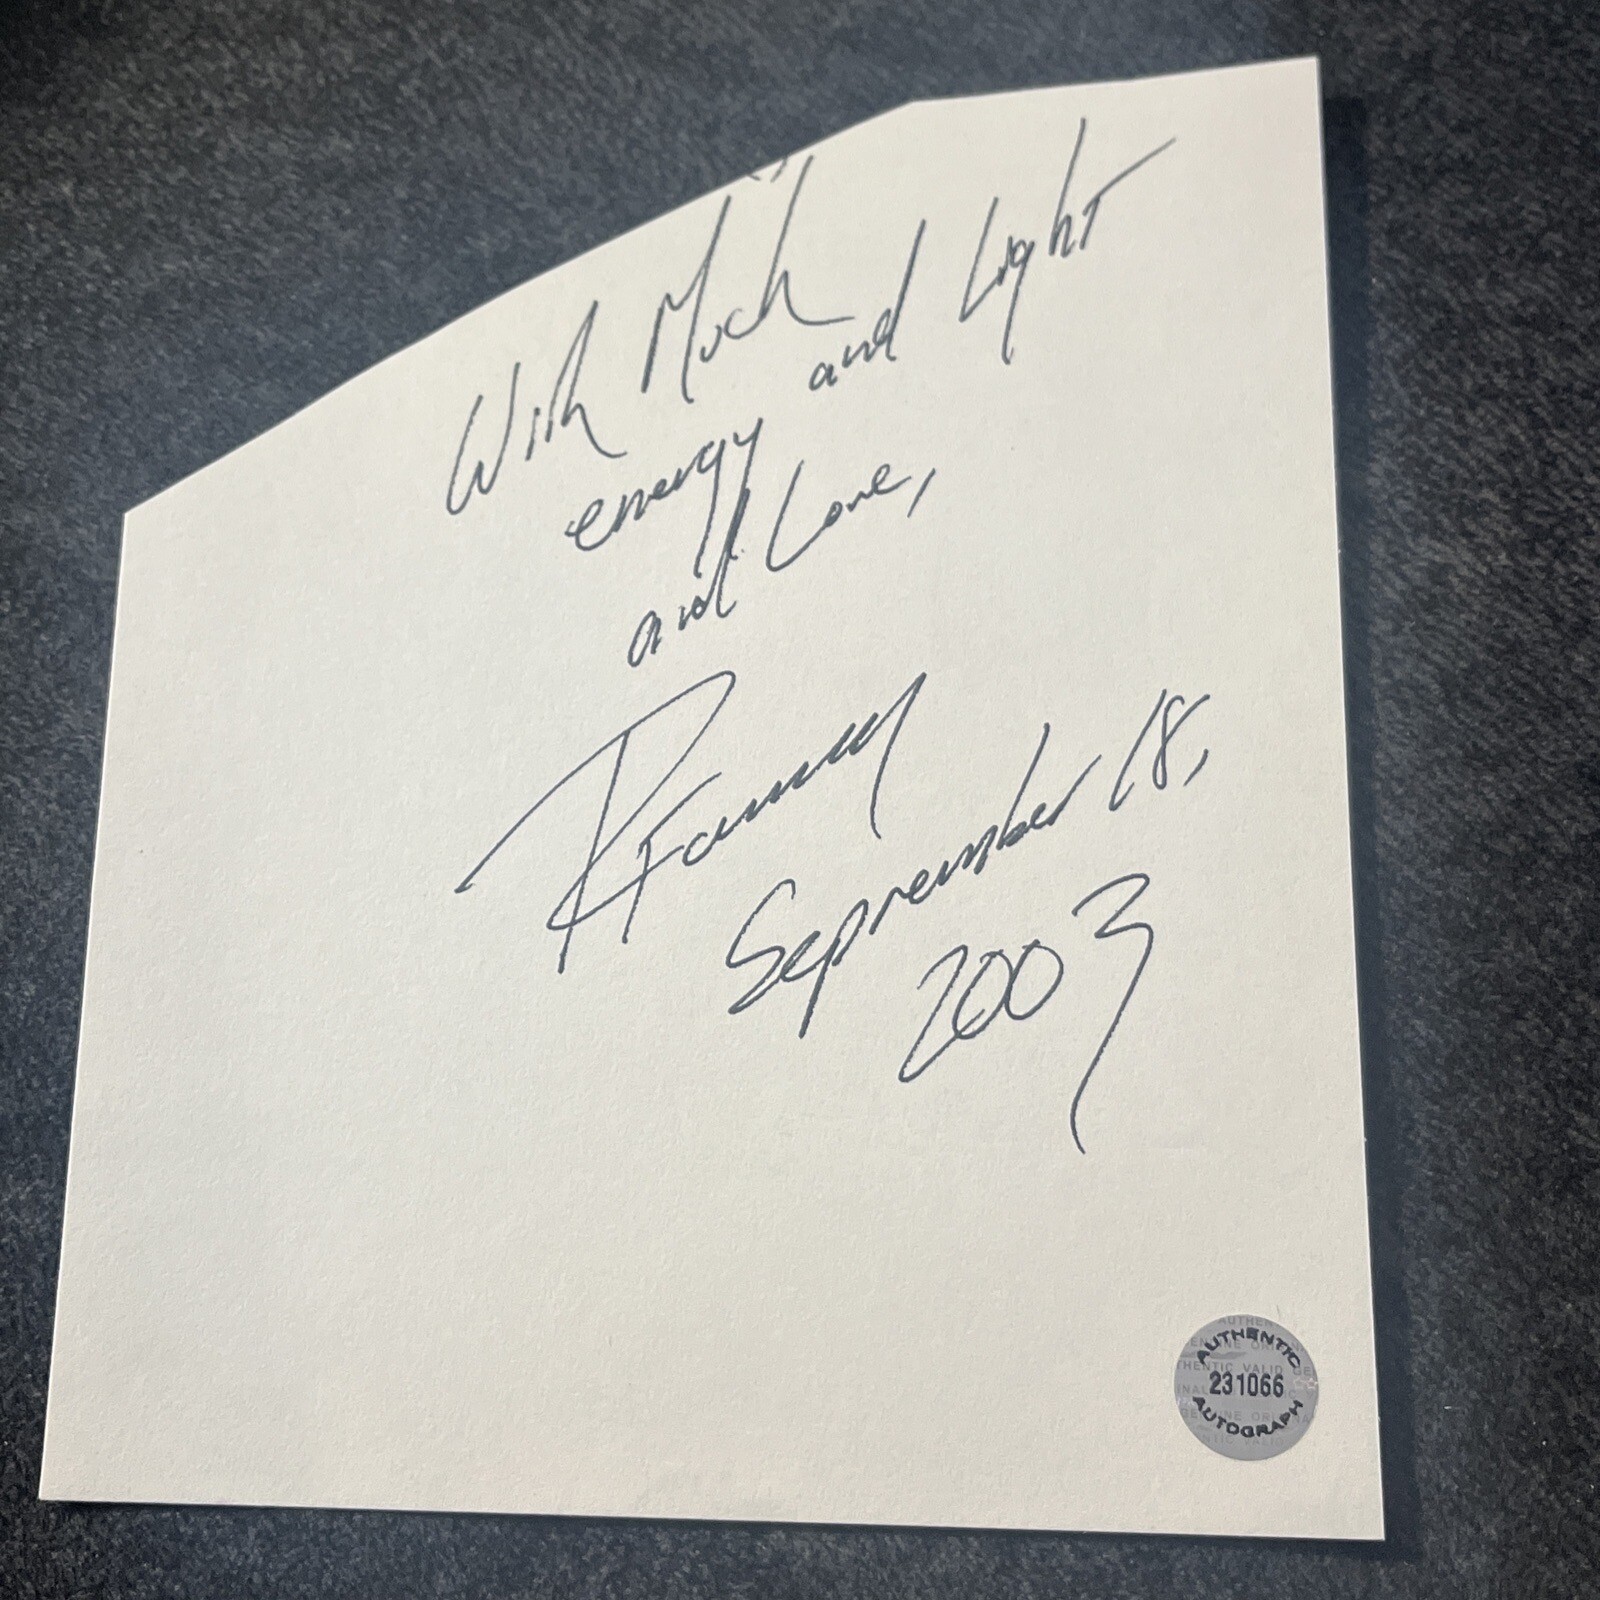 With Much
energy and Light
and Love,
September 18,
2003
AUTHENTIC
231066
AUTOGRAPH